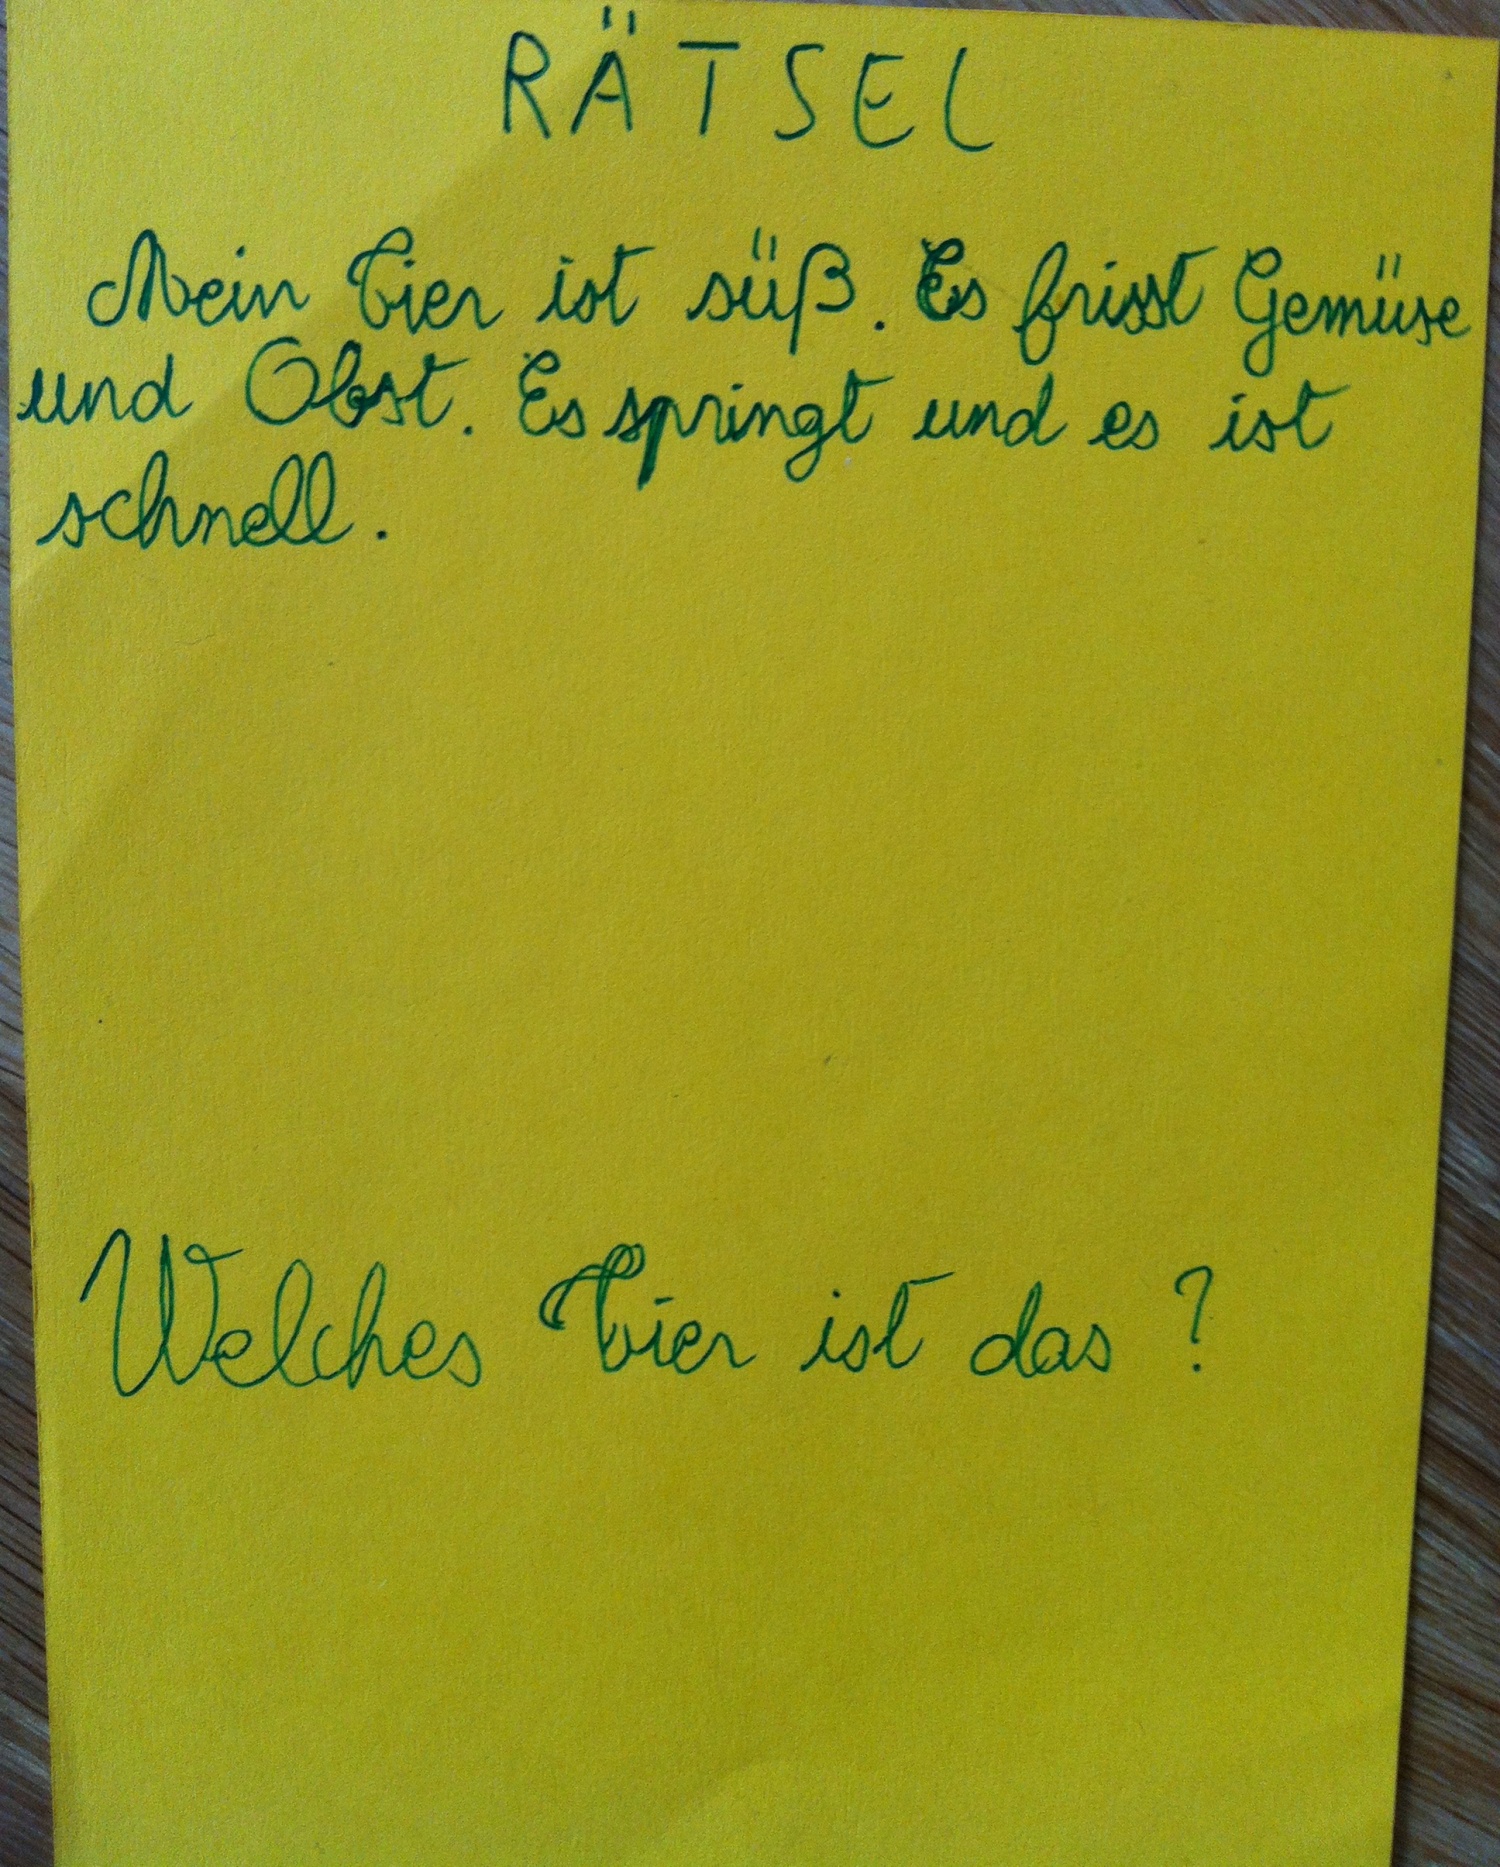 RÄTSEL
Mein Tier ist süß. Es frisst Gemüse
und Obst. Es springt und es ist
schnell.
Welches Tier ist das?